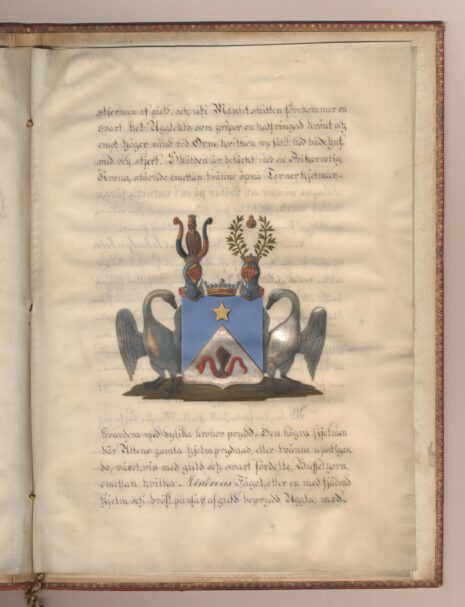 stjernan af guld, och uti Mantel snitten förekommer en
svart het Uggleklo, som griper en half ringad krönt och
emot höger vänd röd Orm, hvilken ny fällt ned både huf-
vud och stjert. Skölden är betäckt med en Friherrelig
Krona, stående emellan tvänne öpna Torner hjelmar
hvardera med dylika kronor prydd. Den högra hjelmen
bär Attens gamla hjelmprydnad, eller tvänne upstigan-
de, växelvis med guld och svart fördelte Buffelhorn,
emellan hvilka Minervas Fågel, eller en med fjädrad
hjelm och bröst pansar af guld beprydd Uggla, med-